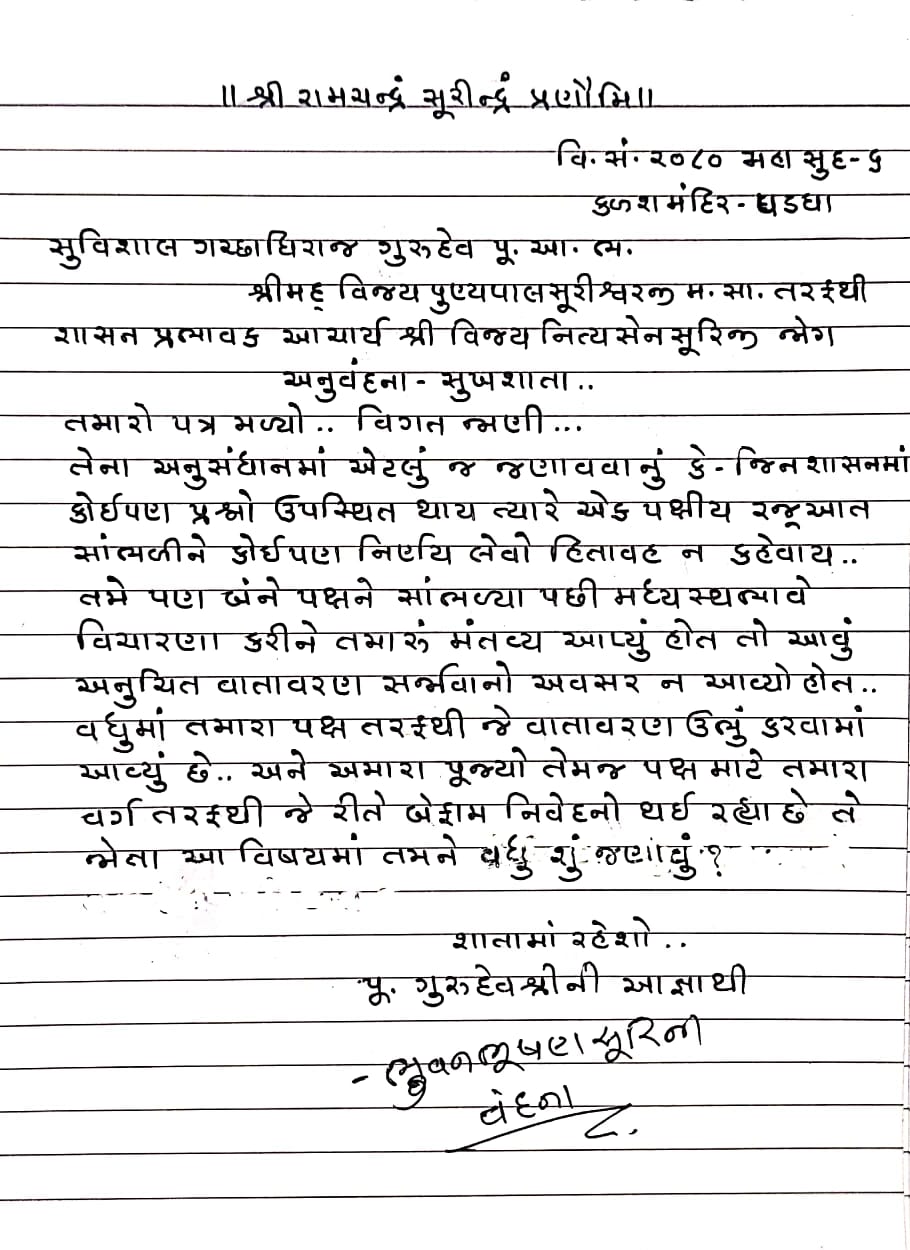 ॥ શ્રી રામચન્દ્રં સૂરીન્દ્રં પ્રણૌમિ॥
વિ.સં.૨૦૮૦ મહા સુદ-૬
કળશમંદિર-ધડધા
સુવિશાલ ગચ્છાધિરાજ ગુરુદેવ પૂ. આ. ભ.
શ્રીમદ્ વિજય પુણ્યપાલસૂરીશ્વરજી મ.સા. તરફથી
શાસન પ્રભાવક આચાર્ય શ્રી વિજય નિત્યસેનસૂરિજી જોગ
અનુવંદના - સુખશાતા..
તમારો પત્ર મળ્યો.. વિગત જાણી...
તેના અનુસંધાનમાં એટલું જ જણાવવાનું કે - જિનશાસનમાં
કોઈપણ પ્રશ્નો ઉપસ્થિત થાય ત્યારે એક પક્ષીય રજૂઆત
સાંભળીને કોઈપણ નિર્ણય લેવો હિતાવહ ન કહેવાય..
તમે પણ બંને પક્ષને સાંભળ્યા પછી મધ્યસ્થભાવે
વિચારણા કરીને તમારું મંતવ્ય આપ્યું હોત તો આવું
અનુચિત વાતાવરણ સર્જાવાનો અવસર ન આવ્યો હોત..
વધુમાં તમારા પક્ષ તરફથી જે વાતાવરણ ઉભું કરવામાં
આવ્યું છે.. અને અમારા પૂજ્યો તેમજ પક્ષ માટે તમારા
વર્ગ તરફથી જે રીતે બેફામ નિવેદનો થઈ રહ્યા છે તે
જોતા આ વિષયમાં તમને વધુ શું જણાવું.?
શાતામાં રહેશો..
પૂ. ગુરુદેવશ્રીની આજ્ઞાથી
- ભુવનભૂષણસૂરિની
વંદના